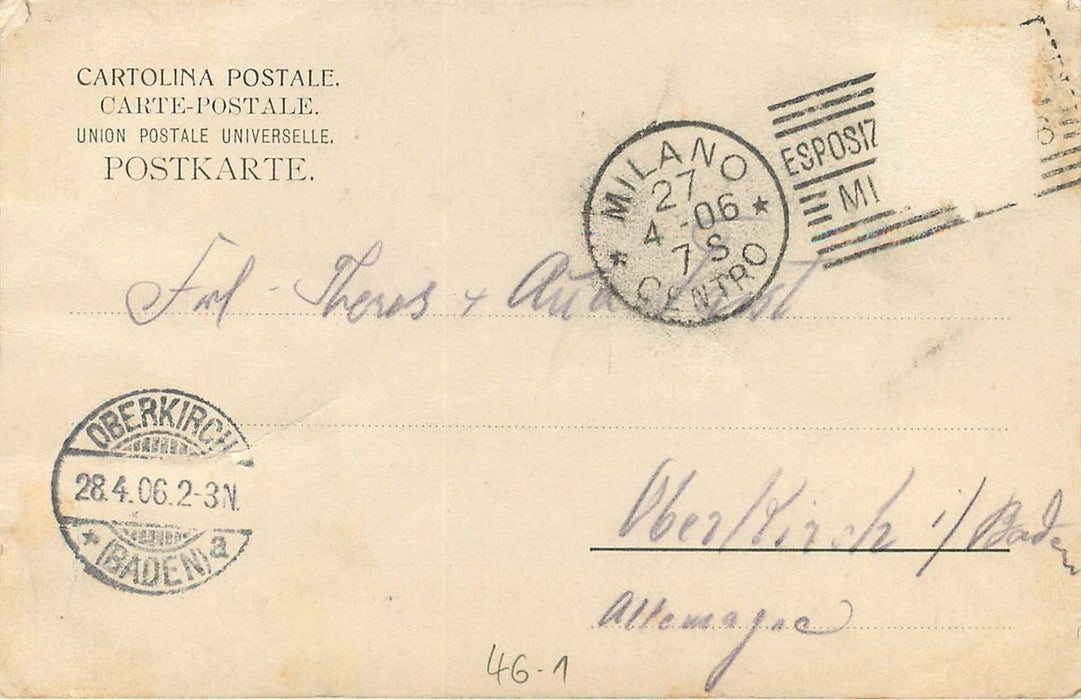 CARTOLINA POSTALE.
CARTE-POSTALE.
UNION POSTALE UNIVERSELLE.
POSTKARTE.
MILANO
27
4-06
7 S
CENTRO
ESPOSIZ
MI
Frl - Theres +
OBERKIRCH
28.4.06.2-3N.
(BADEN) a
Oberkirch i/Baden
Allemagne
46-1